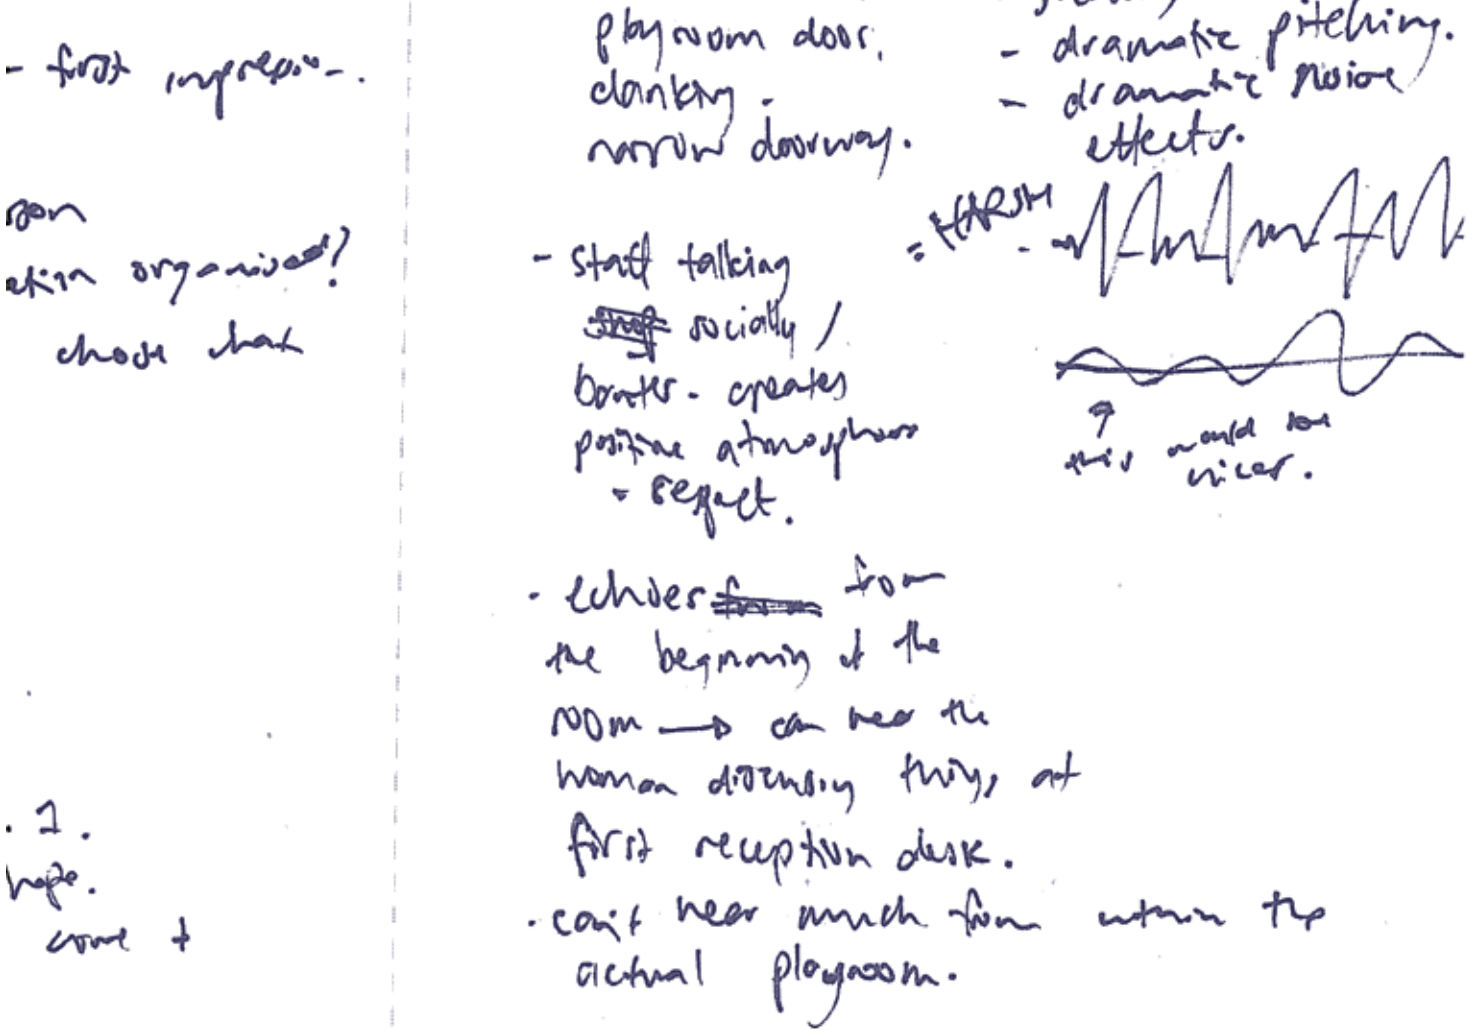 - first impression.
organised?
chose that
1.
come t
playroom door,
clanking.
narrow doorway.
- staff talking
socially /
banter - creates
positive atmosphere
- respect.
- echoes from
the beginning of the
room → can hear the
woman discussing things at
first reception desk.
- can't hear much from within the
actual playroom.
- dramatic pitching.
- dramatic noise
effects.
= HARSH
this would be
nicer.